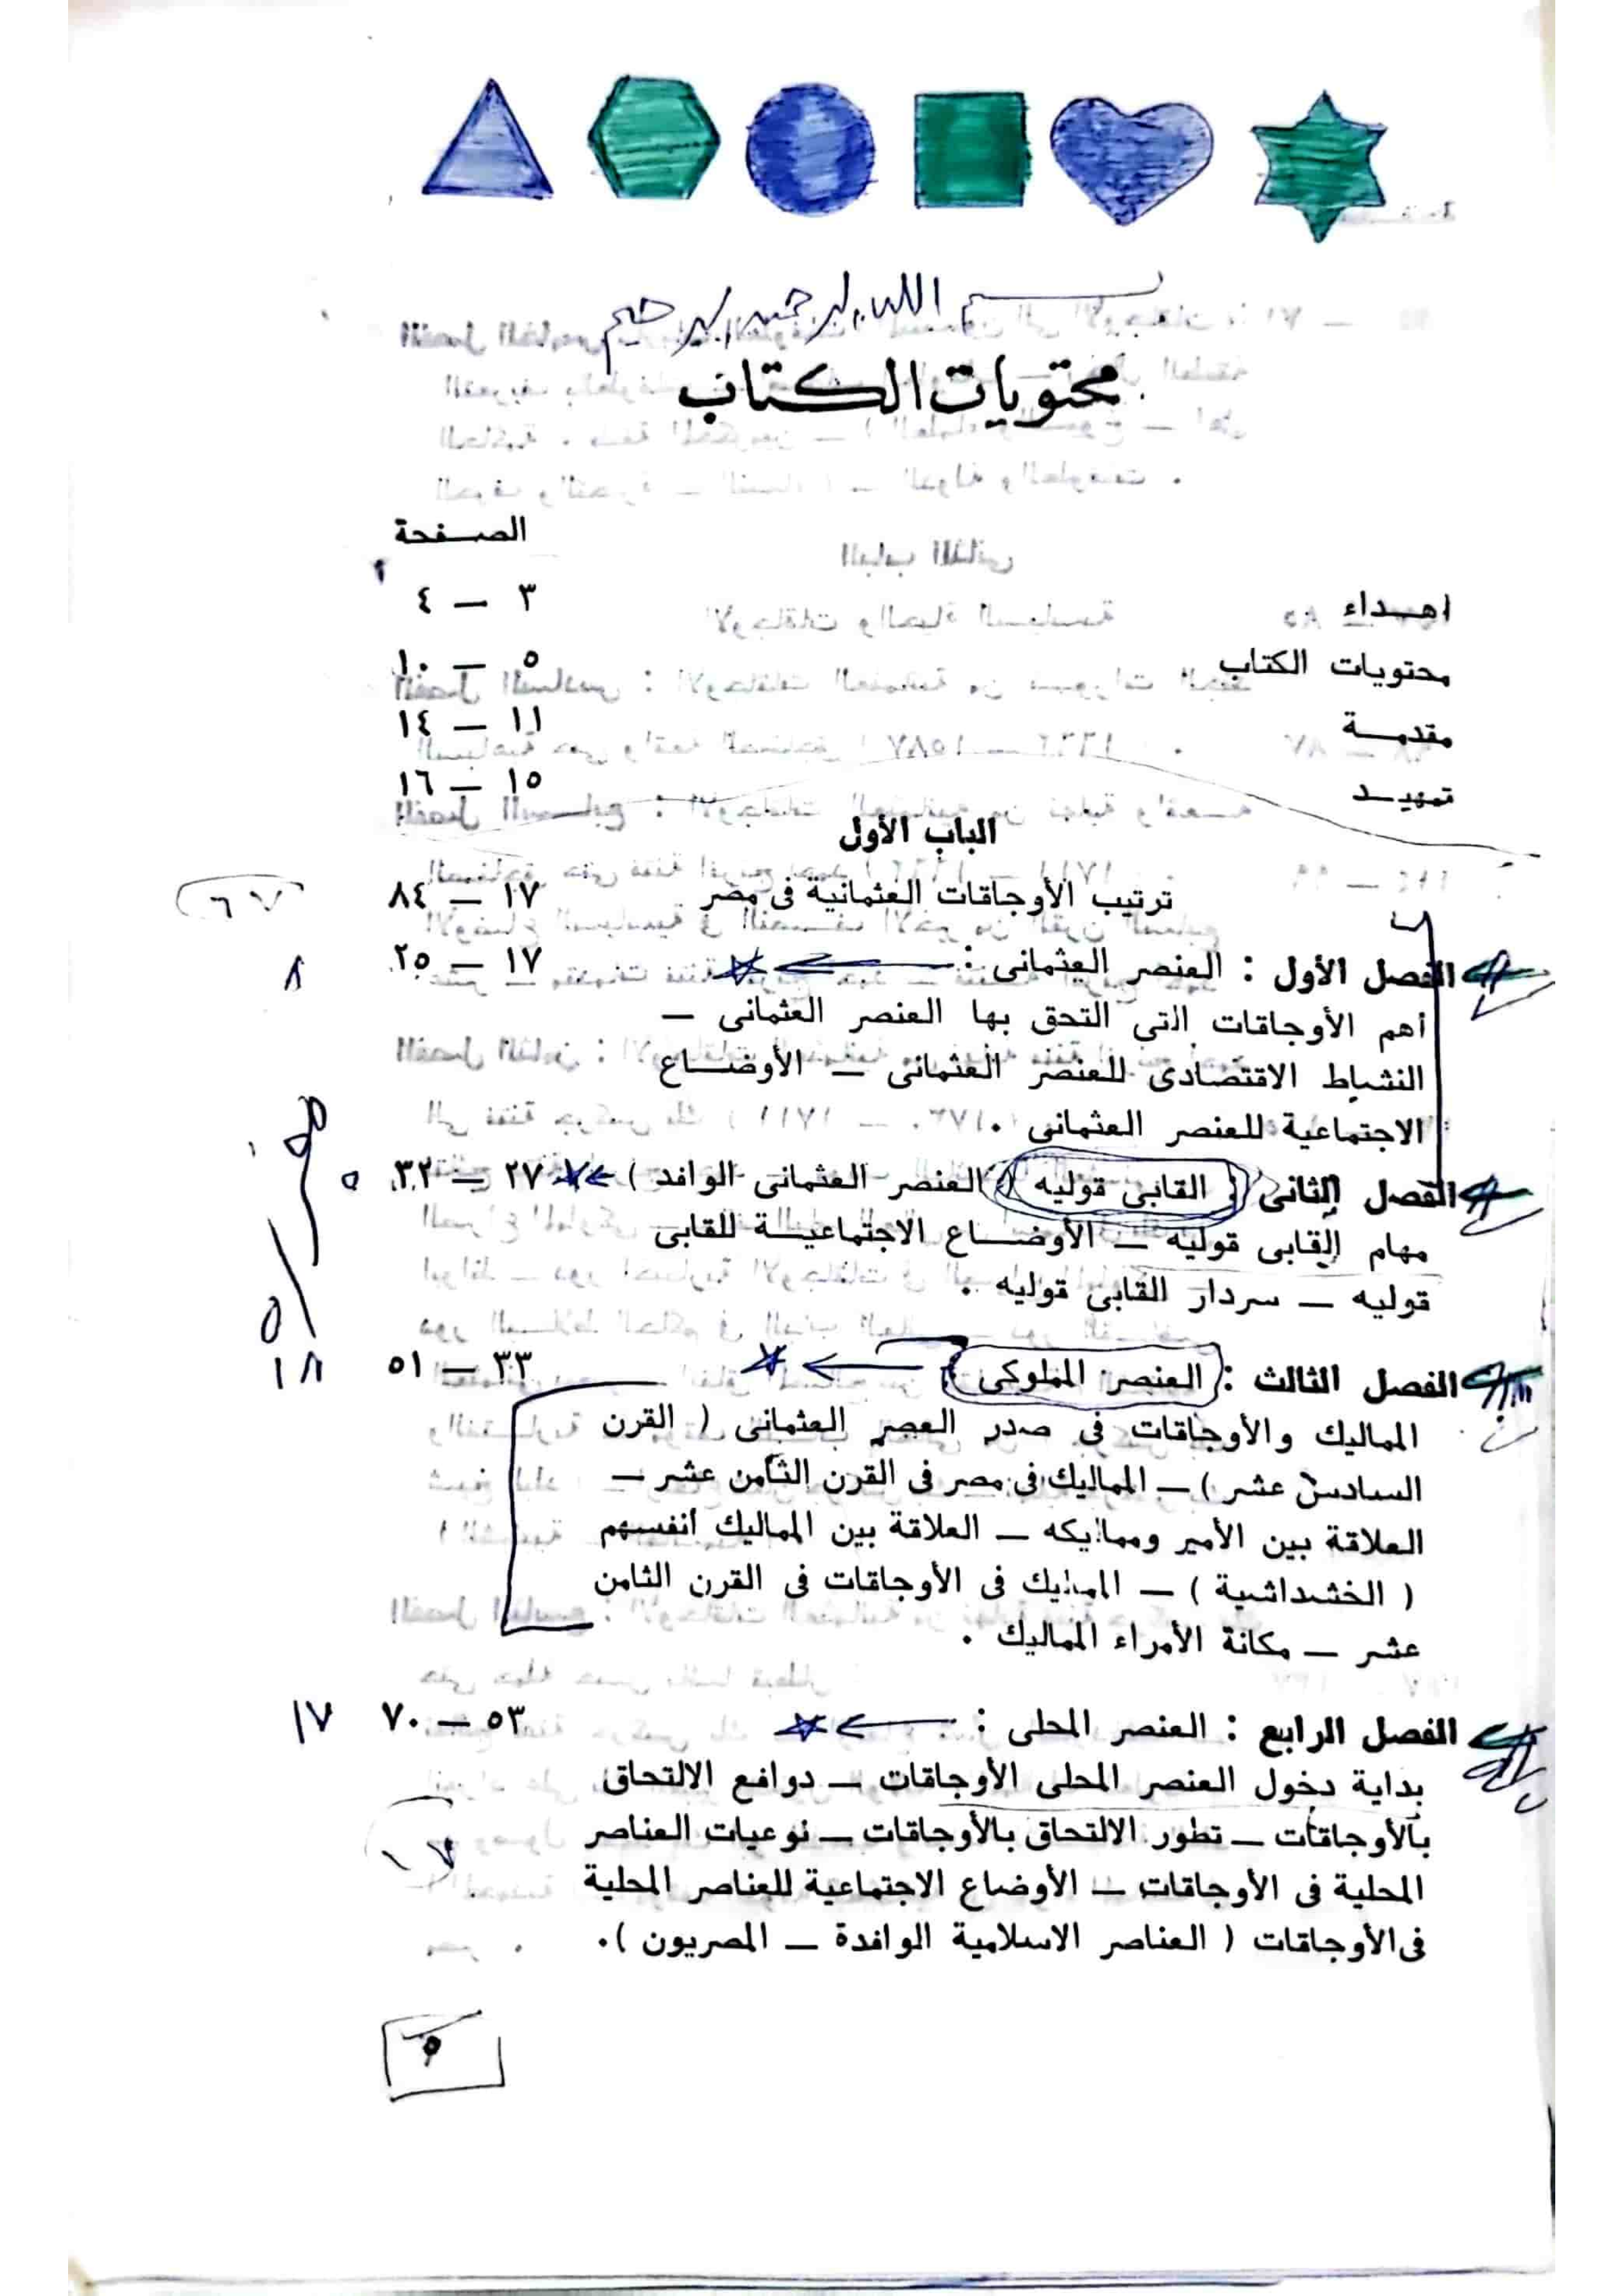 بسم الله الرحمن الرحيم
محتويات الكتاب
الصفحة
اهداء ٣ — ٤
محتويات الكتاب ٥ — ١٠
مقدمة ١١ — ١٤
تمهيد ١٥ — ١٦
الباب الأول
ترتيب الأوجاقات العثمانية فى مصر ١٧ — ٨٤ ٦٧
الفصل الأول : العنصر العثمانى : ١٧ — ٢٥ ٨
أهم الأوجاقات التى التحق بها العنصر العثمانى —
النشاط الاقتصادى للعنصر العثمانى — الأوضاع
الاجتماعية للعنصر العثمانى .
الفصل الثانى ( القابى قوليه ) ( العنصر العثمانى الوافد ) ٢٧ — ٣٢ ٥
مهام القابى قوليه — الأوضاع الاجتماعية للقابى
قوليه — سردار القابى قوليه .
الفصل الثالث : العنصر المملوكى : ٣٣ — ٥١ ١٨
المماليك والأوجاقات فى صدر العصر العثمانى ( القرن
السادس عشر ) — المماليك فى مصر فى القرن الثامن عشر —
العلاقة بين الأمير ومماليكه — العلاقة بين المماليك أنفسهم
( الخشداشية ) — المماليك فى الأوجاقات فى القرن الثامن
عشر — مكانة الأمراء المماليك .
الفصل الرابع : العنصر المحلى : ٥٣ — ٧٠ ١٧
بداية دخول العنصر المحلى الأوجاقات — دوافع الالتحاق
بالأوجاقات — تطور الالتحاق بالأوجاقات — نوعيات العناصر
المحلية فى الأوجاقات — الأوضاع الاجتماعية للعناصر المحلية
فى الأوجاقات ( العناصر الاسلامية الوافدة — المصريون ) .
٥